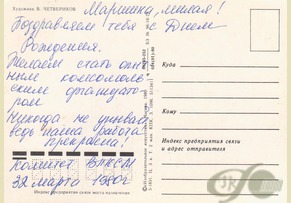 Художник В. ЧЕТВЕРИКОВ
Маришка, милая!
Поздравляем тебя с Днем
Рождения.
Желаем стать отличным комсомольским организатором
Никогда не унывай
ведь наша работа
прекрасна!
Комитет ВЛКСМ
32 марта 1980г.
Куда
Кому
Индекс предприятия связи
и адрес отправителя
Индекс предприятия связи места назначения